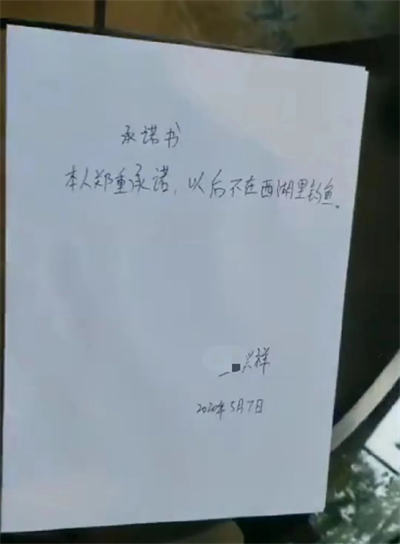 承诺书
本人郑重承诺，以后不在西湖里钓鱼。
兴祥
2020年5月7日